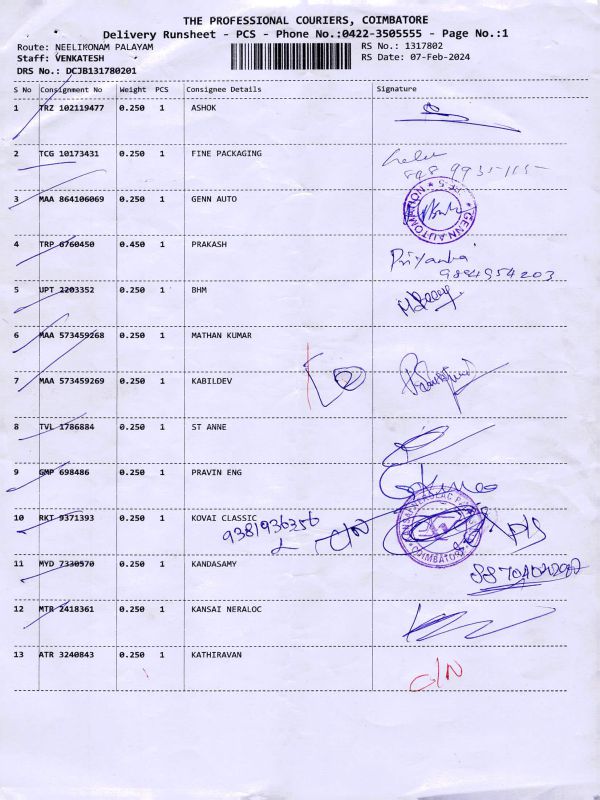 THE PROFESSIONAL COURIERS, COIMBATORE
Delivery Runsheet - PCS - Phone No.:0422-3505555 - Page No.:1
Route: NEELIKONAM PALAYAM RS No.: 1317802
Staff: VENKATESH RS Date: 07-Feb-2024
DRS No.: DCJB131780201
S No Consignment No Weight PCS Consignee Details Signature
1 TRZ 102119477 0.250 1 ASHOK
2 TCG 10173431 0.250 1 FINE PACKAGING
3 MAA 864106069 0.250 1 GENN AUTO
GENN AUTOMATION
4 TRP 6760450 0.450 1 PRAKASH Priyanka
9884954203
5 UPT 2203352 0.250 1 BHM
6 MAA 573459268 0.250 1 MATHAN KUMAR
7 MAA 573459269 0.250 1 KABILDEV
8 TVL 1786884 0.250 1 ST ANNE
9 GMP 698486 0.250 1 PRAVIN ENG
10 RKT 9371393 0.250 1 KOVAI CLASSIC
9381936356
COIMBATORE
11 MYD 7330570 0.250 1 KANDASAMY
12 MTR 2418361 0.250 1 KANSAI NERALOC
13 ATR 3240843 0.250 1 KATHIRAVAN D/N